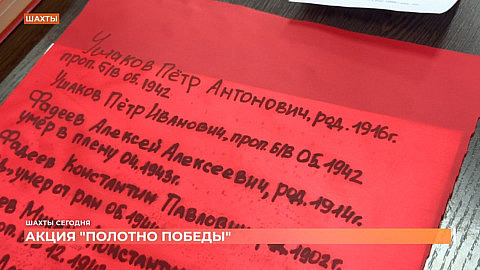 ШАХТЫ
Ушаков Пётр Антонович, род. 1916г.
проп. б/в 05.1942
Ушаков Пётр Иванович, проп. б/в 05.1942
Фадеев Алексей Алексеевич, род. 1914г.
умер в плену 04.1943г.
Фадеев Константин Павлович, 1902г.
умер от ран 05.194
Константин
12.194
ШАХТЫ СЕГОДНЯ
АКЦИЯ "ПОЛОТНО ПОБЕДЫ"